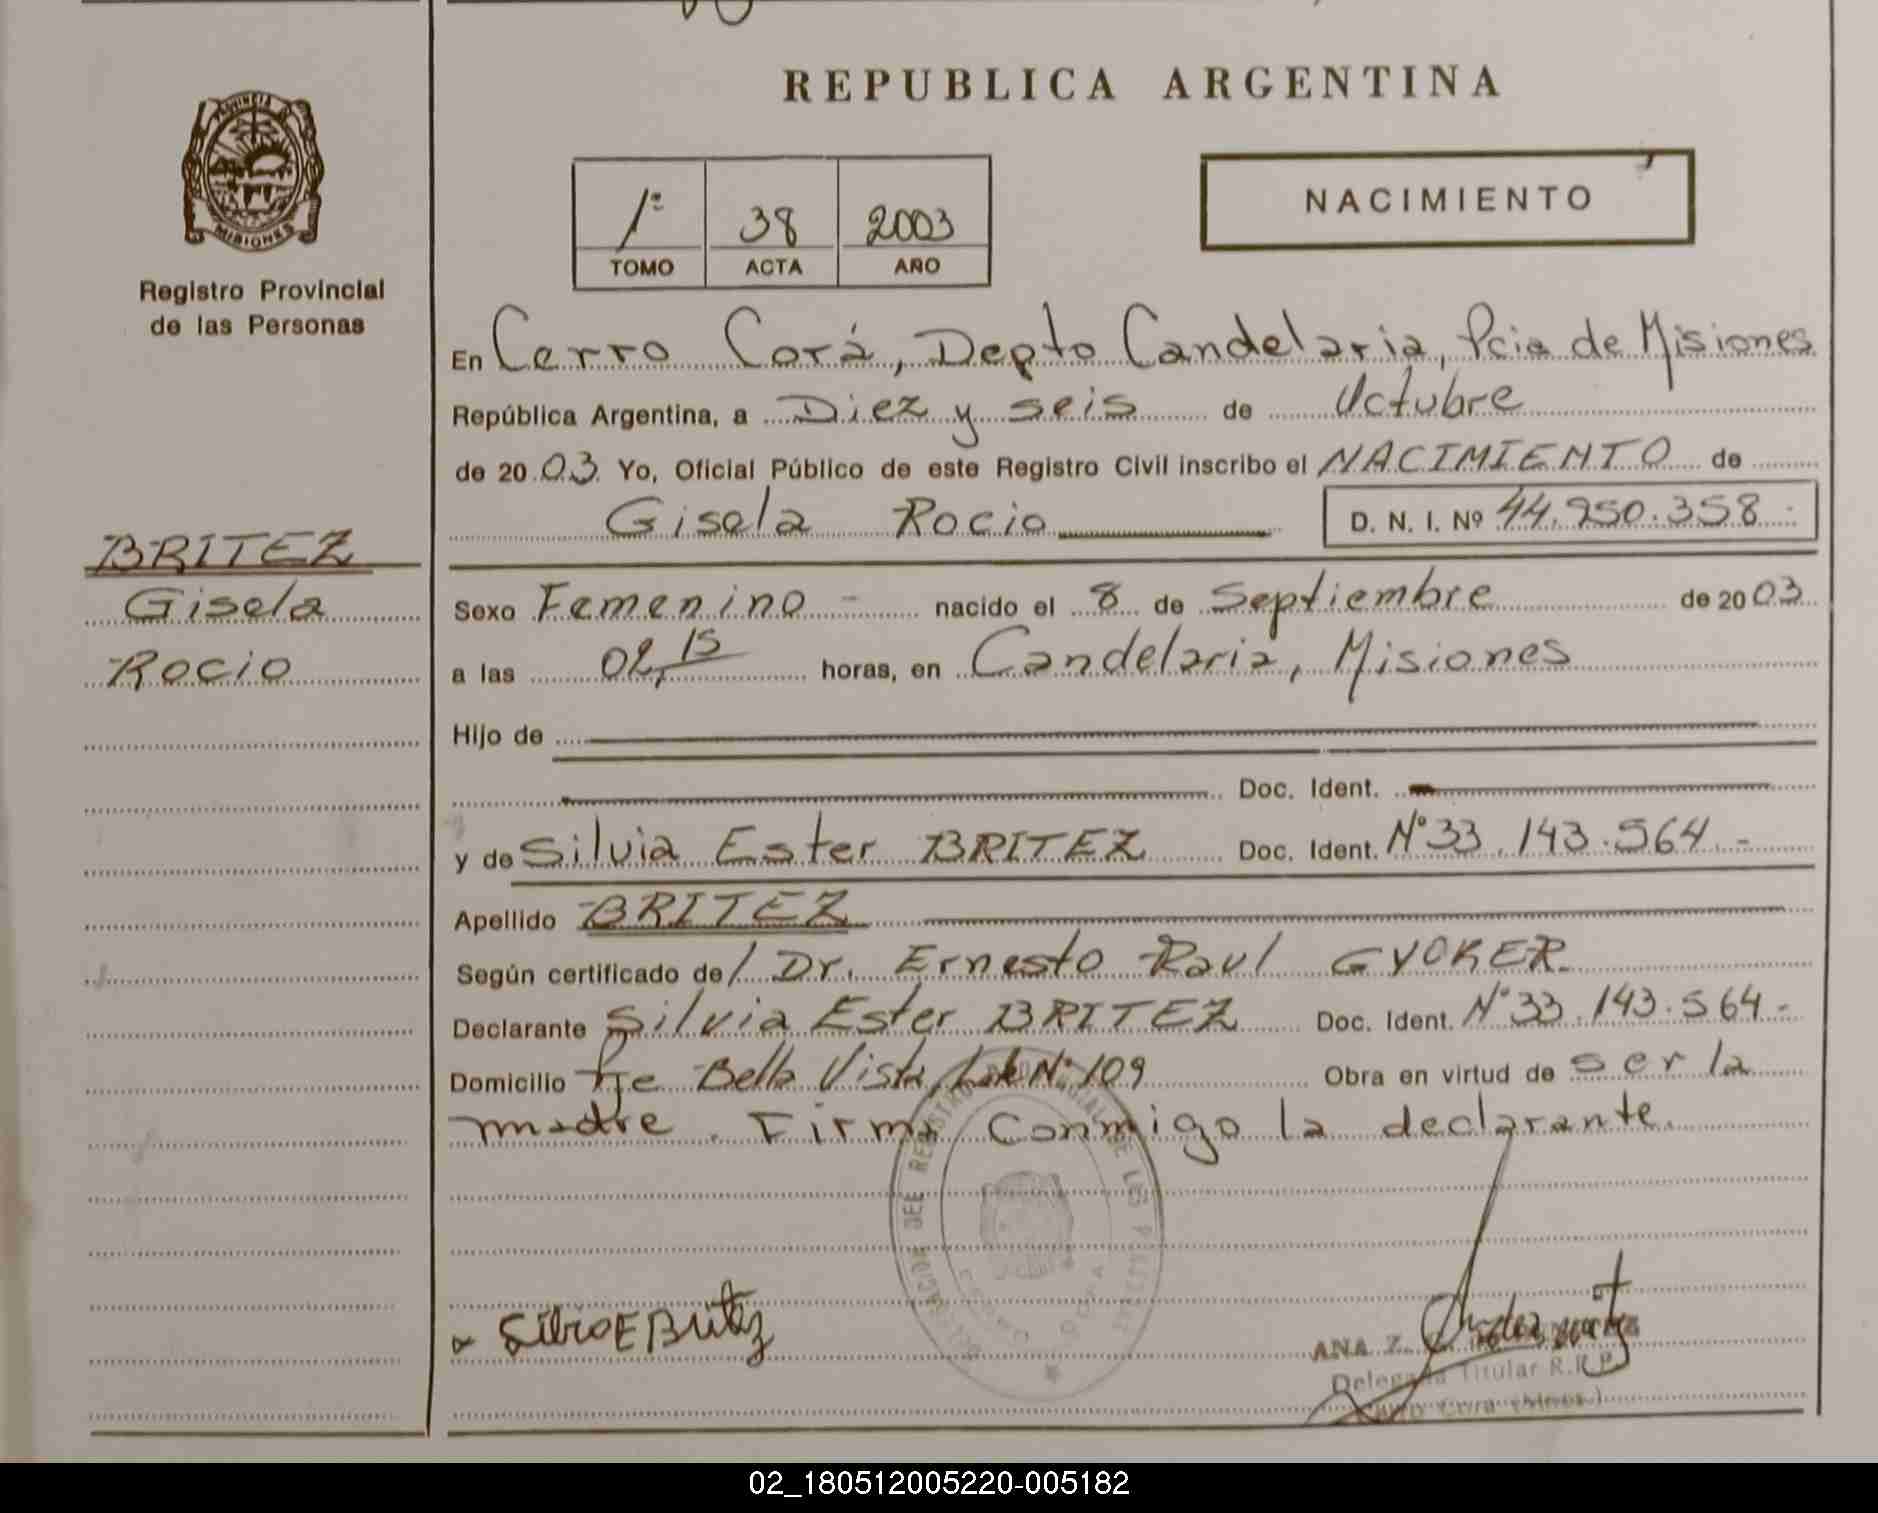 REPUBLICA ARGENTINA
PROVINCIA
MISIONES
Registro Provincial
de las Personas
1º 38 2003
TOMO ACTA AÑO
NACIMIENTO
En Cerro Corá, Depto Candelaria, Pcia de Misiones
República Argentina, a Diez y seis de Octubre
de 2003 Yo, Oficial Público de este Registro Civil inscribo el NACIMIENTO de
Gisela Rocio D. N. I. Nº 44.950.358
BRITEZ
Gisela
Rocio
Sexo Femenino - nacido el 8 de Septiembre de 2003
a las 02,15 horas, en Candelaria, Misiones
Hijo de
Doc. Ident.
y de Silvia Ester BRITEZ Doc. Ident. Nº 33.143.564.-
Apellido BRITEZ
Según certificado de / Dr. Ernesto Raul GYOKER.
Declarante Silvia Ester BRITEZ Doc. Ident. Nº 33.143.564.-
Domicilio Pje Bella Vista, Lote Nº 109 Obra en virtud de ser la
madre. Firma conmigo la declarante.
ANA Z.
Delegada Titular R.R.P.
Cerro Cora (Mnes.)
02_180512005220-005182